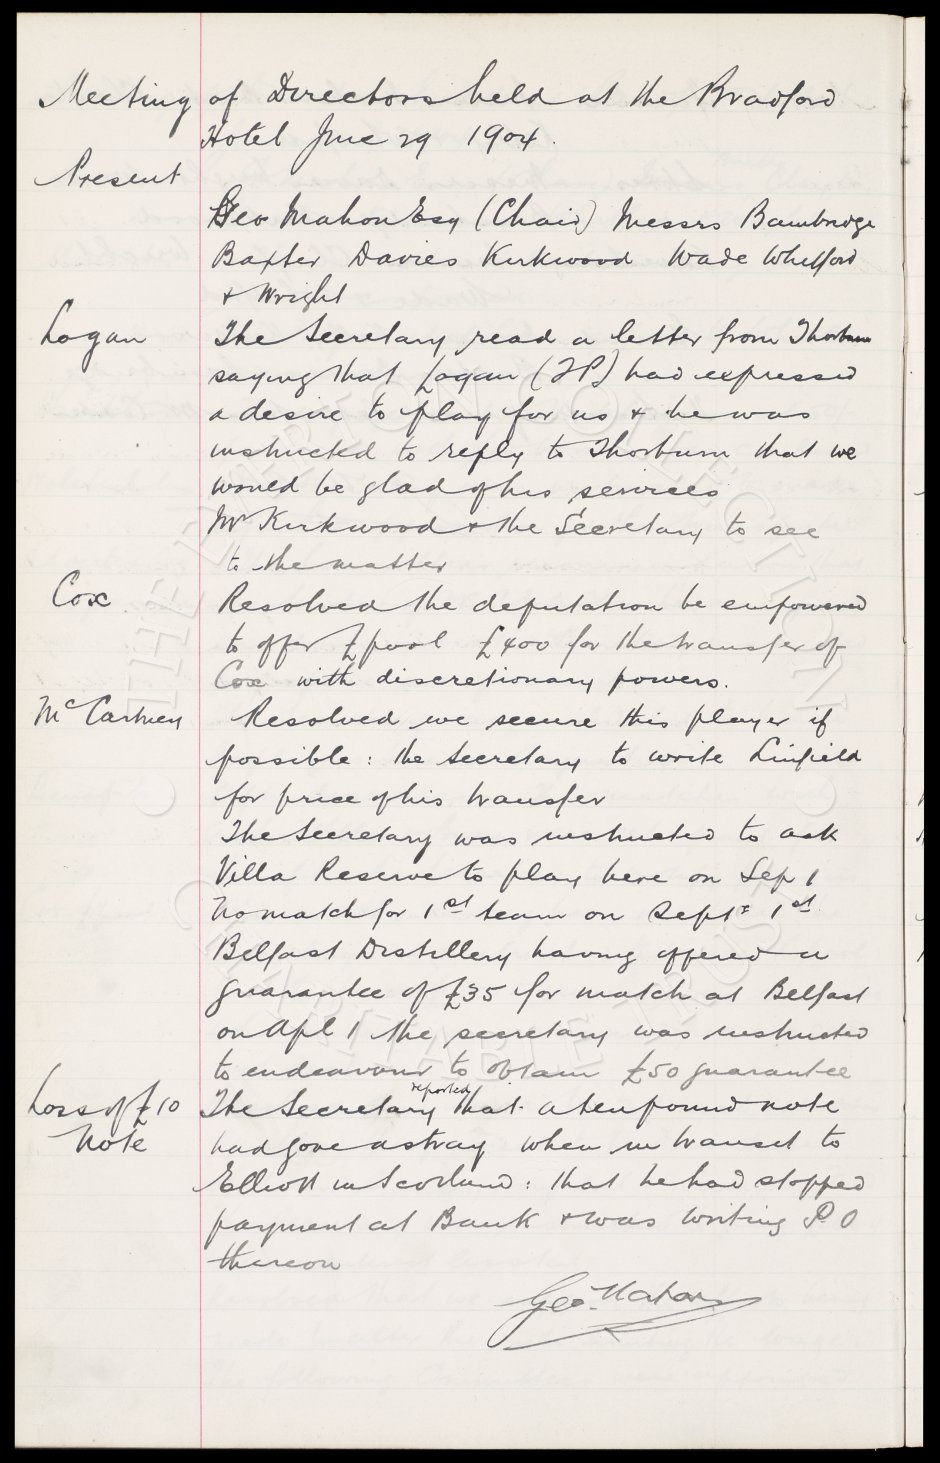 Meeting of Directors held at the Bradford
Hotel June 29 1904.
Present
Geo Mahon Esq (Chair) Messrs Bainbridge
Baxter Davies Kirkwood Wade Whitford
& Wright
Logan The Secretary read a letter from Thorburn
saying that Logan (TP) had expressed
a desire to play for us & he was
instructed to reply to Thorburn that we
would be glad of his services
Mr Kirkwood & the Secretary to see
to the matter
Cox Resolved the deputation be empowered
to offer L'pool £400 for the transfer of
Cox with discretionary powers.
McCartney Resolved we secure this player if
possible: the Secretary to write Linfield
for price of his transfer
The Secretary was instructed to ask
Villa Reserve to play here on Sep 1
No match for 1st team on Sept 1st.
Belfast Distillery having offered a
guarantee of £35 for match at Belfast
on Apl 1 the secretary was instructed
to endeavour to obtain £50 guarantee
Loss of £10 The Secretary reported that a ten pound note
Note had gone astray when in transit to
Elliott in Scotland: that he had stopped
payment at Bank & was writing P.O
thereon
Geo. Mahon